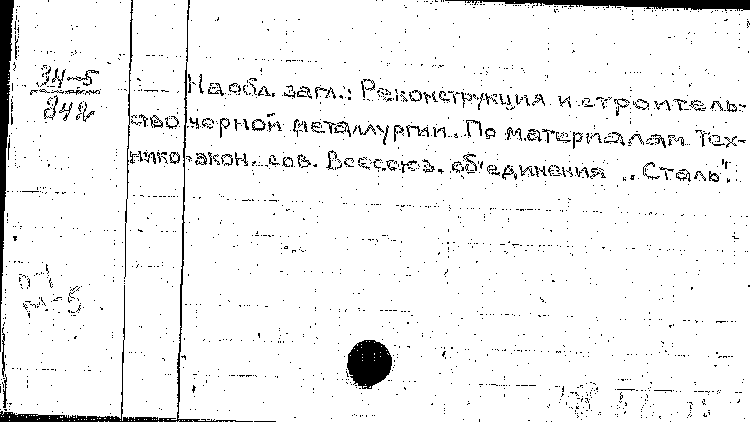 34-5
342
На обл. загл.: Реконструкция и строитель-
ство черной металлургии. По материалам Тех-
нико-экон. сов. Всесоюз. об'единения „Сталь".